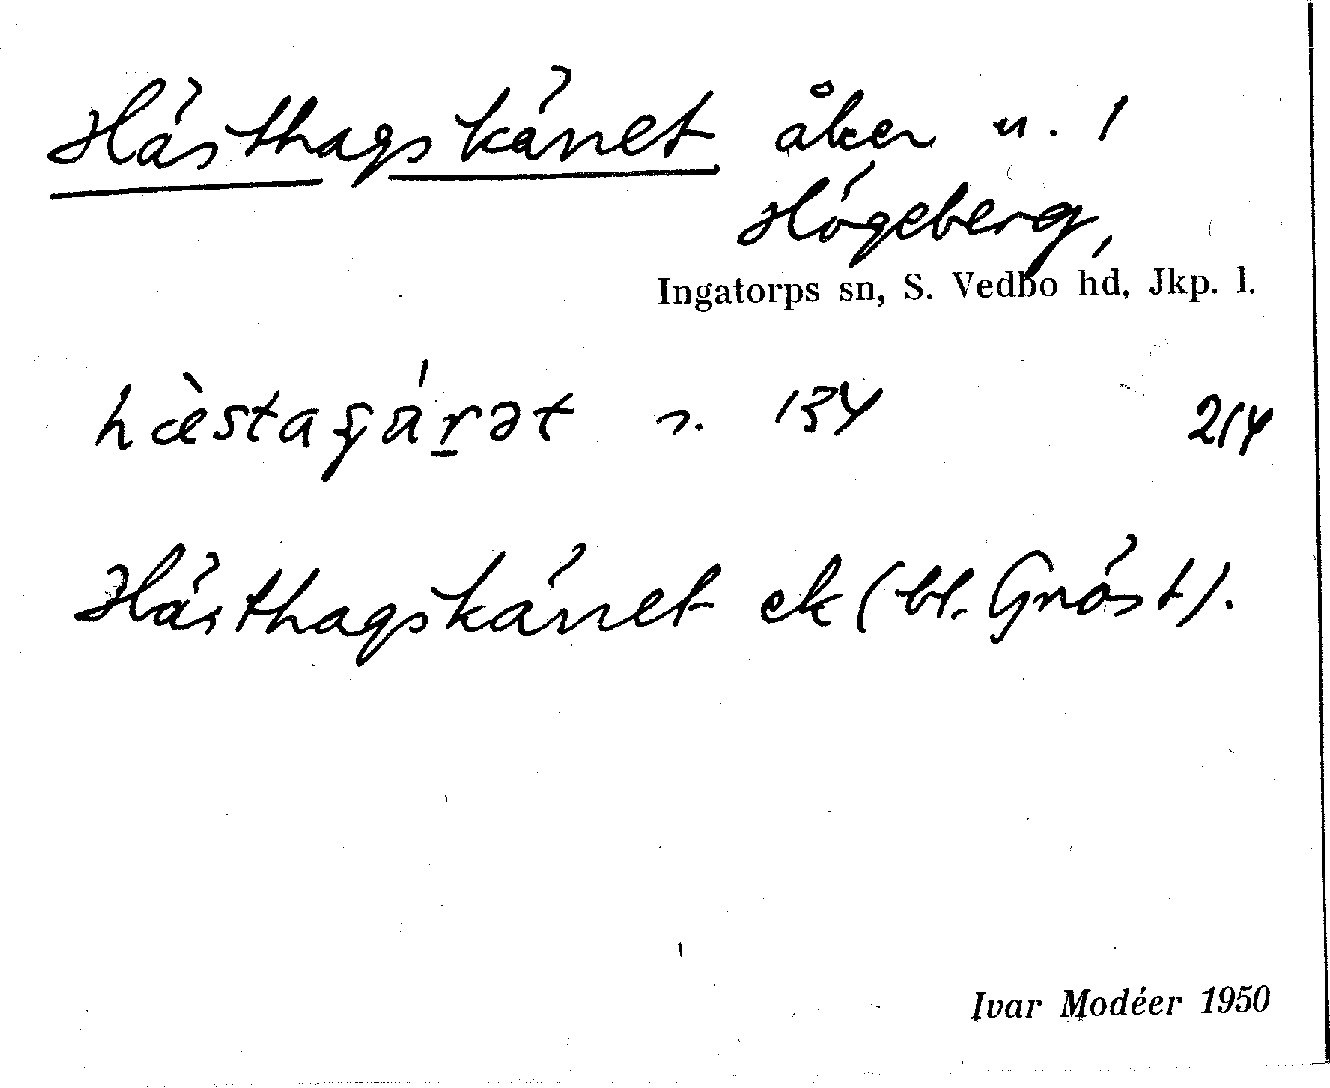 Hästhagskärret åker u. 1
Högeberg,
Ingatorps sn, S. Vedbo hd, Jkp. l.
s. 134 214
Hästhagskärret ek (bl. Gröst).
Ivar Modéer 1950